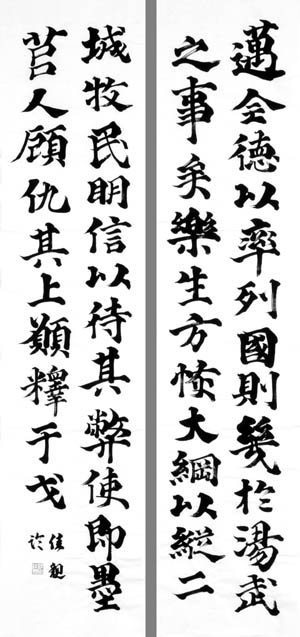 邁全德以率列國則幾於湯武
之事矣樂生方恢大綱以縱二
城牧民明信以待其弊使即墨
莒人顧仇其上願釋干戈